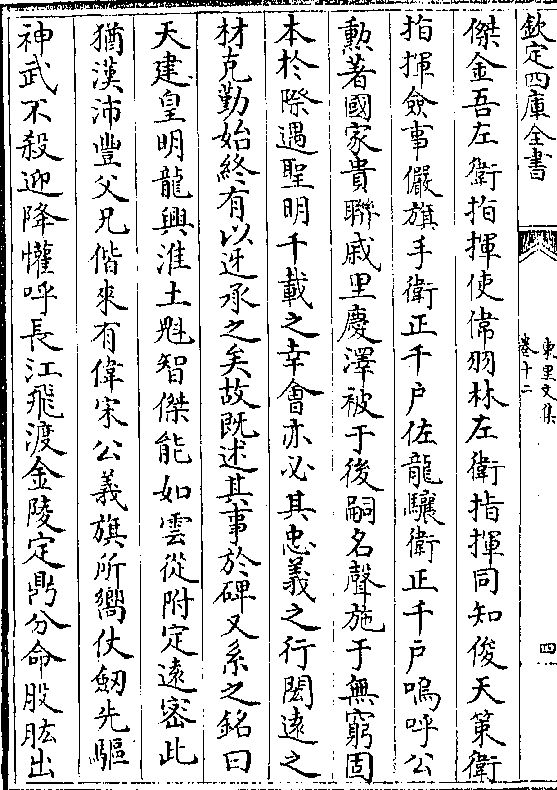 欽定四庫全書
東里文集
卷十二
四
傑金吾左衛指揮使偉羽林左衛指揮同知俊天策衛
指揮僉事儼旗手衛正千户佐龍驤衛正千户嗚呼公
勲著國家貴聯戚里慶澤被于後嗣名聲施于無窮固
本於際遇聖明千載之幸會亦必其忠義之行閎遠之
材克勤始終有以迓承之矣故既述其事於碑又系之銘曰
天建皇明龍興淮土魁智傑能如雲從附定遠密此
猶漢沛豐父兄偕來有偉宋公義旗所嚮仗劒先驅
神武不殺迎降懽呼長江飛渡金陵定鼎分命股肱出